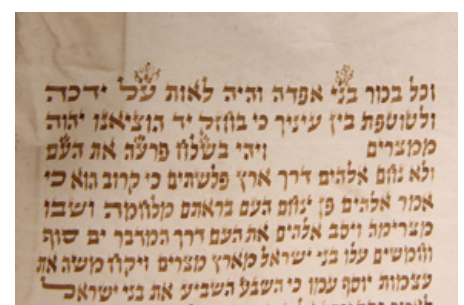 וכל בכור בני אפדה והיה לאות על ידכה
ולטוטפת בין עיניך כי בחזק יד הוציאנו יהוה
ממצרים ויהי בשלח פרעה את העם
ולא נחם אלהים דרך ארץ פלשתים כי קרוב הוא כי
אמר אלהים פן ינחם העם בראתם מלחמה ושבו
מצרימה ויסב אלהים את העם דרך המדבר ים סוף
וחמשים עלו בני ישראל מארץ מצרים ויקח משה את
עצמות יוסף עמו כי השבע השביע את בני ישראל